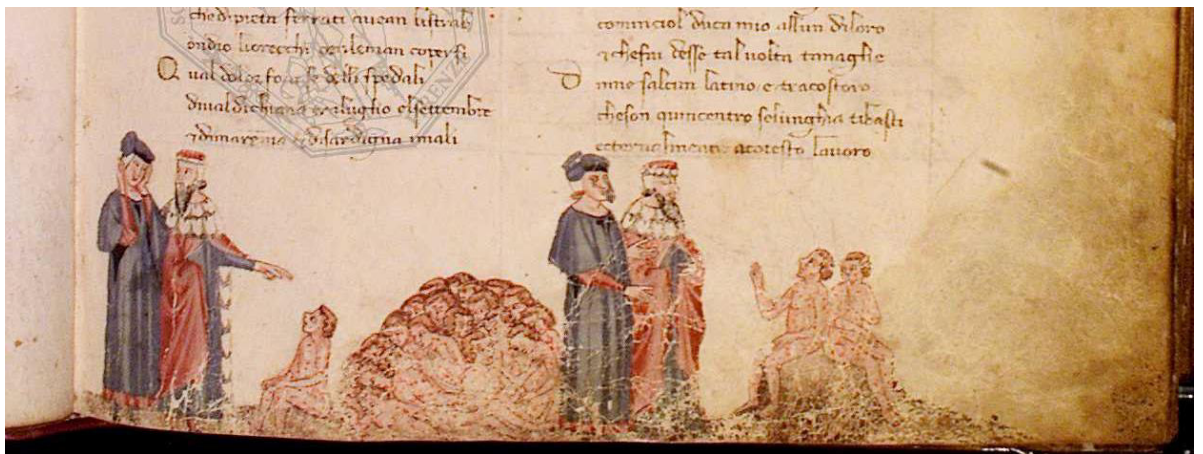 chedipieta ferrati auean listrali
ondio liorecchi coleman copersi
Qual dolor fora se delli spedali
diualdichiana traluglio elsettembre
edimarema edisardigna imali
cominciol ducamio allun diloro
echefai desse tal uolta tanaglie
Dinne salcun latino e tracostoro
cheson quincentro selunghia tibasti
ecternalmente acotesto lauoro